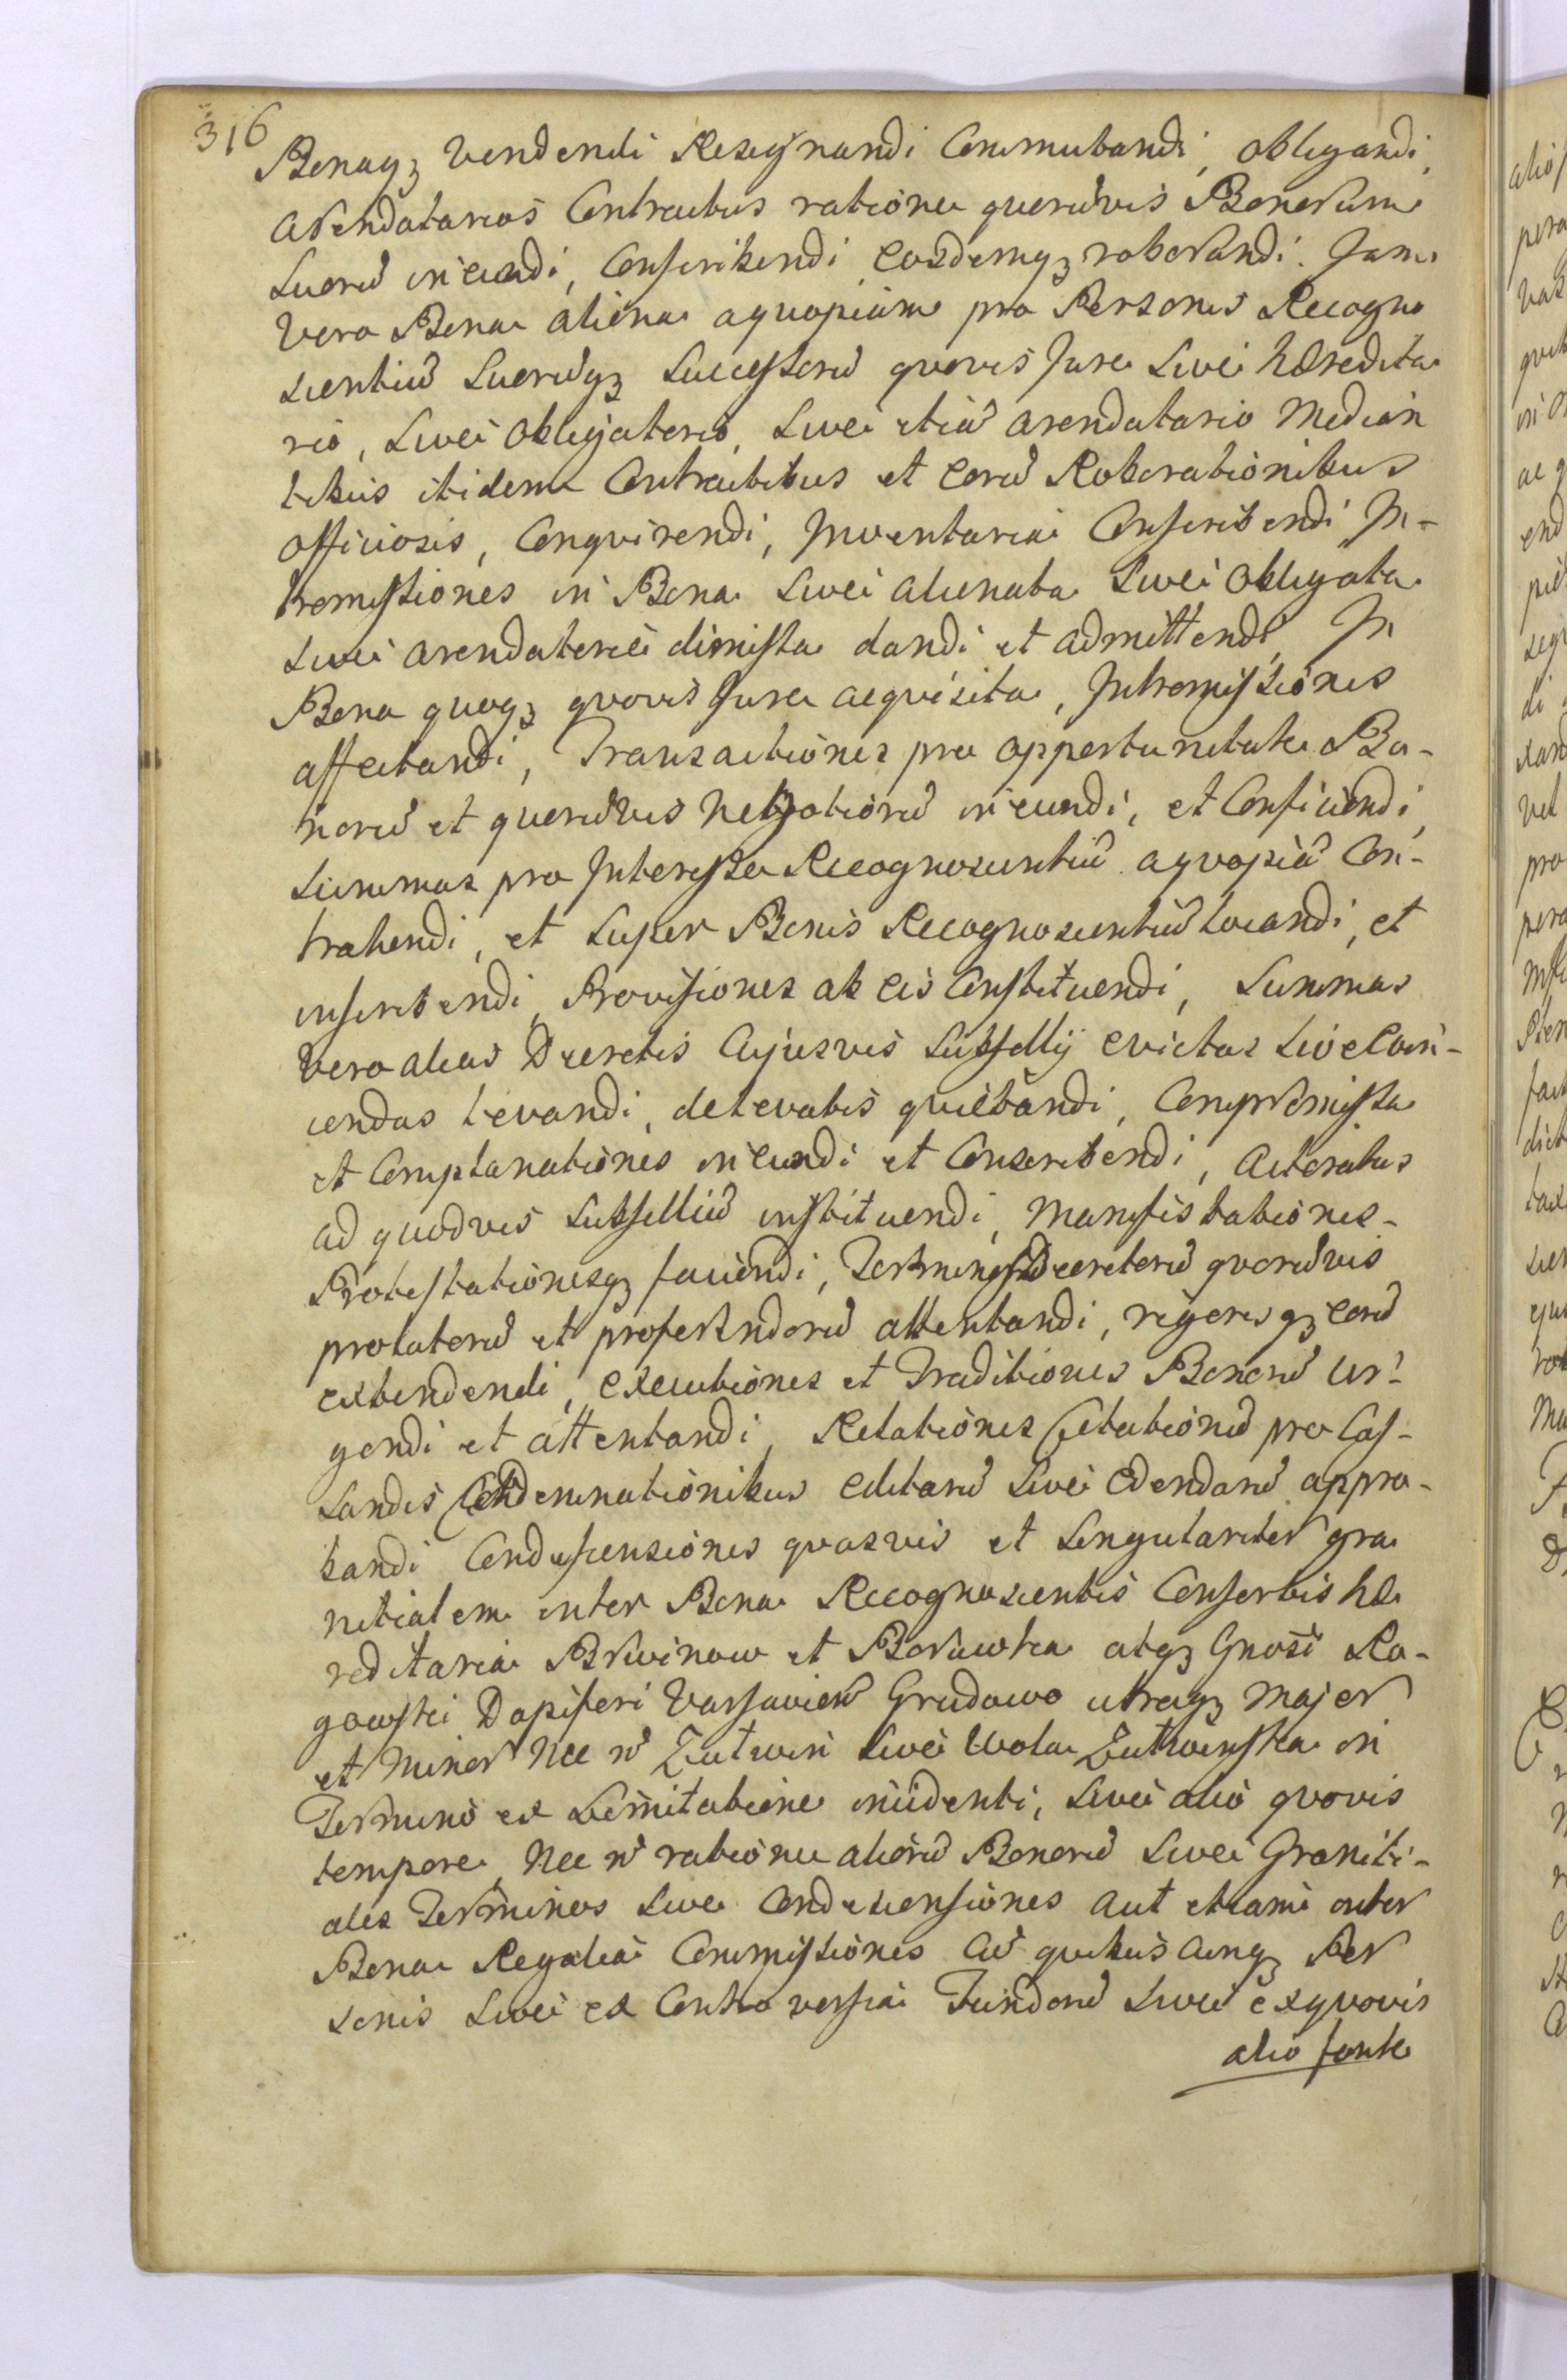 316
Bonaqꝫ vendendi Resignandi Commutandi, obligandi,
Arendatarios Contractus ratione quorūvis Bonorum
suorū ineundi, Conscribendi eosdemqꝫ roborandi. Jam
vero Bona aliena aquopiam pro Personis Recogno
scentiū suorūqꝫ Successorū quovis Jure sive hæredita
rio, sive obligatorio, sive etiā arendatario median
tibus itidem Contractibus et eorū Roborationibus
officiosis, Conquirendi, Inventaria Conscribendi In-
tromissiones in Bona sive alienata sive obligata
sive arendatorie dimissa dandi et admittendi, In
Bona quoqꝫ quovis Jure acquisita, Intromissiones
affectandi, Transactiones pro opportunitate Bo-
norū et quorūvis Negotiorū ineundi, et Conficiendi,
Summas pro Interesse Recognoscentiū aquopiā Con-
trahendi, et super Bonis Recognoscentiū locandi, et
inscribendi, Provisiones ab eis Constituendi, Summas
vero alias Decretis Cujusvis Subsellij evictas sive Evin-
cendas levandi, delevatis quietandi, Compromissa
et Complanationes ineundi et Conscribendi, Actoratus
ad quodvis Subselliū instituendi, Manifestationes-
Protestationesqꝫ faciendi, Terminos Decretorū quorūvis
prolatorū et proferendorū attentandi, rigoresqꝫ eorū
extendendi, executiones et Traditiones Bonorū ur-
gendi et attentandi, Relationes Citationū pro Cas-
sandis Condemnationibus editarū sive edendarū appro-
bandi Condescensiones quasvis et singulariter gra
nitialem inter Bona Recognoscentis Consortis hæ
reditaria Brwinow et Borawka atqꝫ Gnosi Ro-
gowski Dapiferi Varsavien Grudowo utrāqꝫ Major
et Minor Nec ñ Żułwin sive Wola Żułwinska in
Termino ex Limitatione incidenti, sive alio quovis
tempore, Nec ñ ratione aliorū Bonorū sive Graniti-
ales Terminos sive Condescensiones aut etiam inter
Bona Regalia Commissiones Cū quibuscunqꝫ Per
sonis sive ex Controversia Fundorū sive exquovis
alio fonte